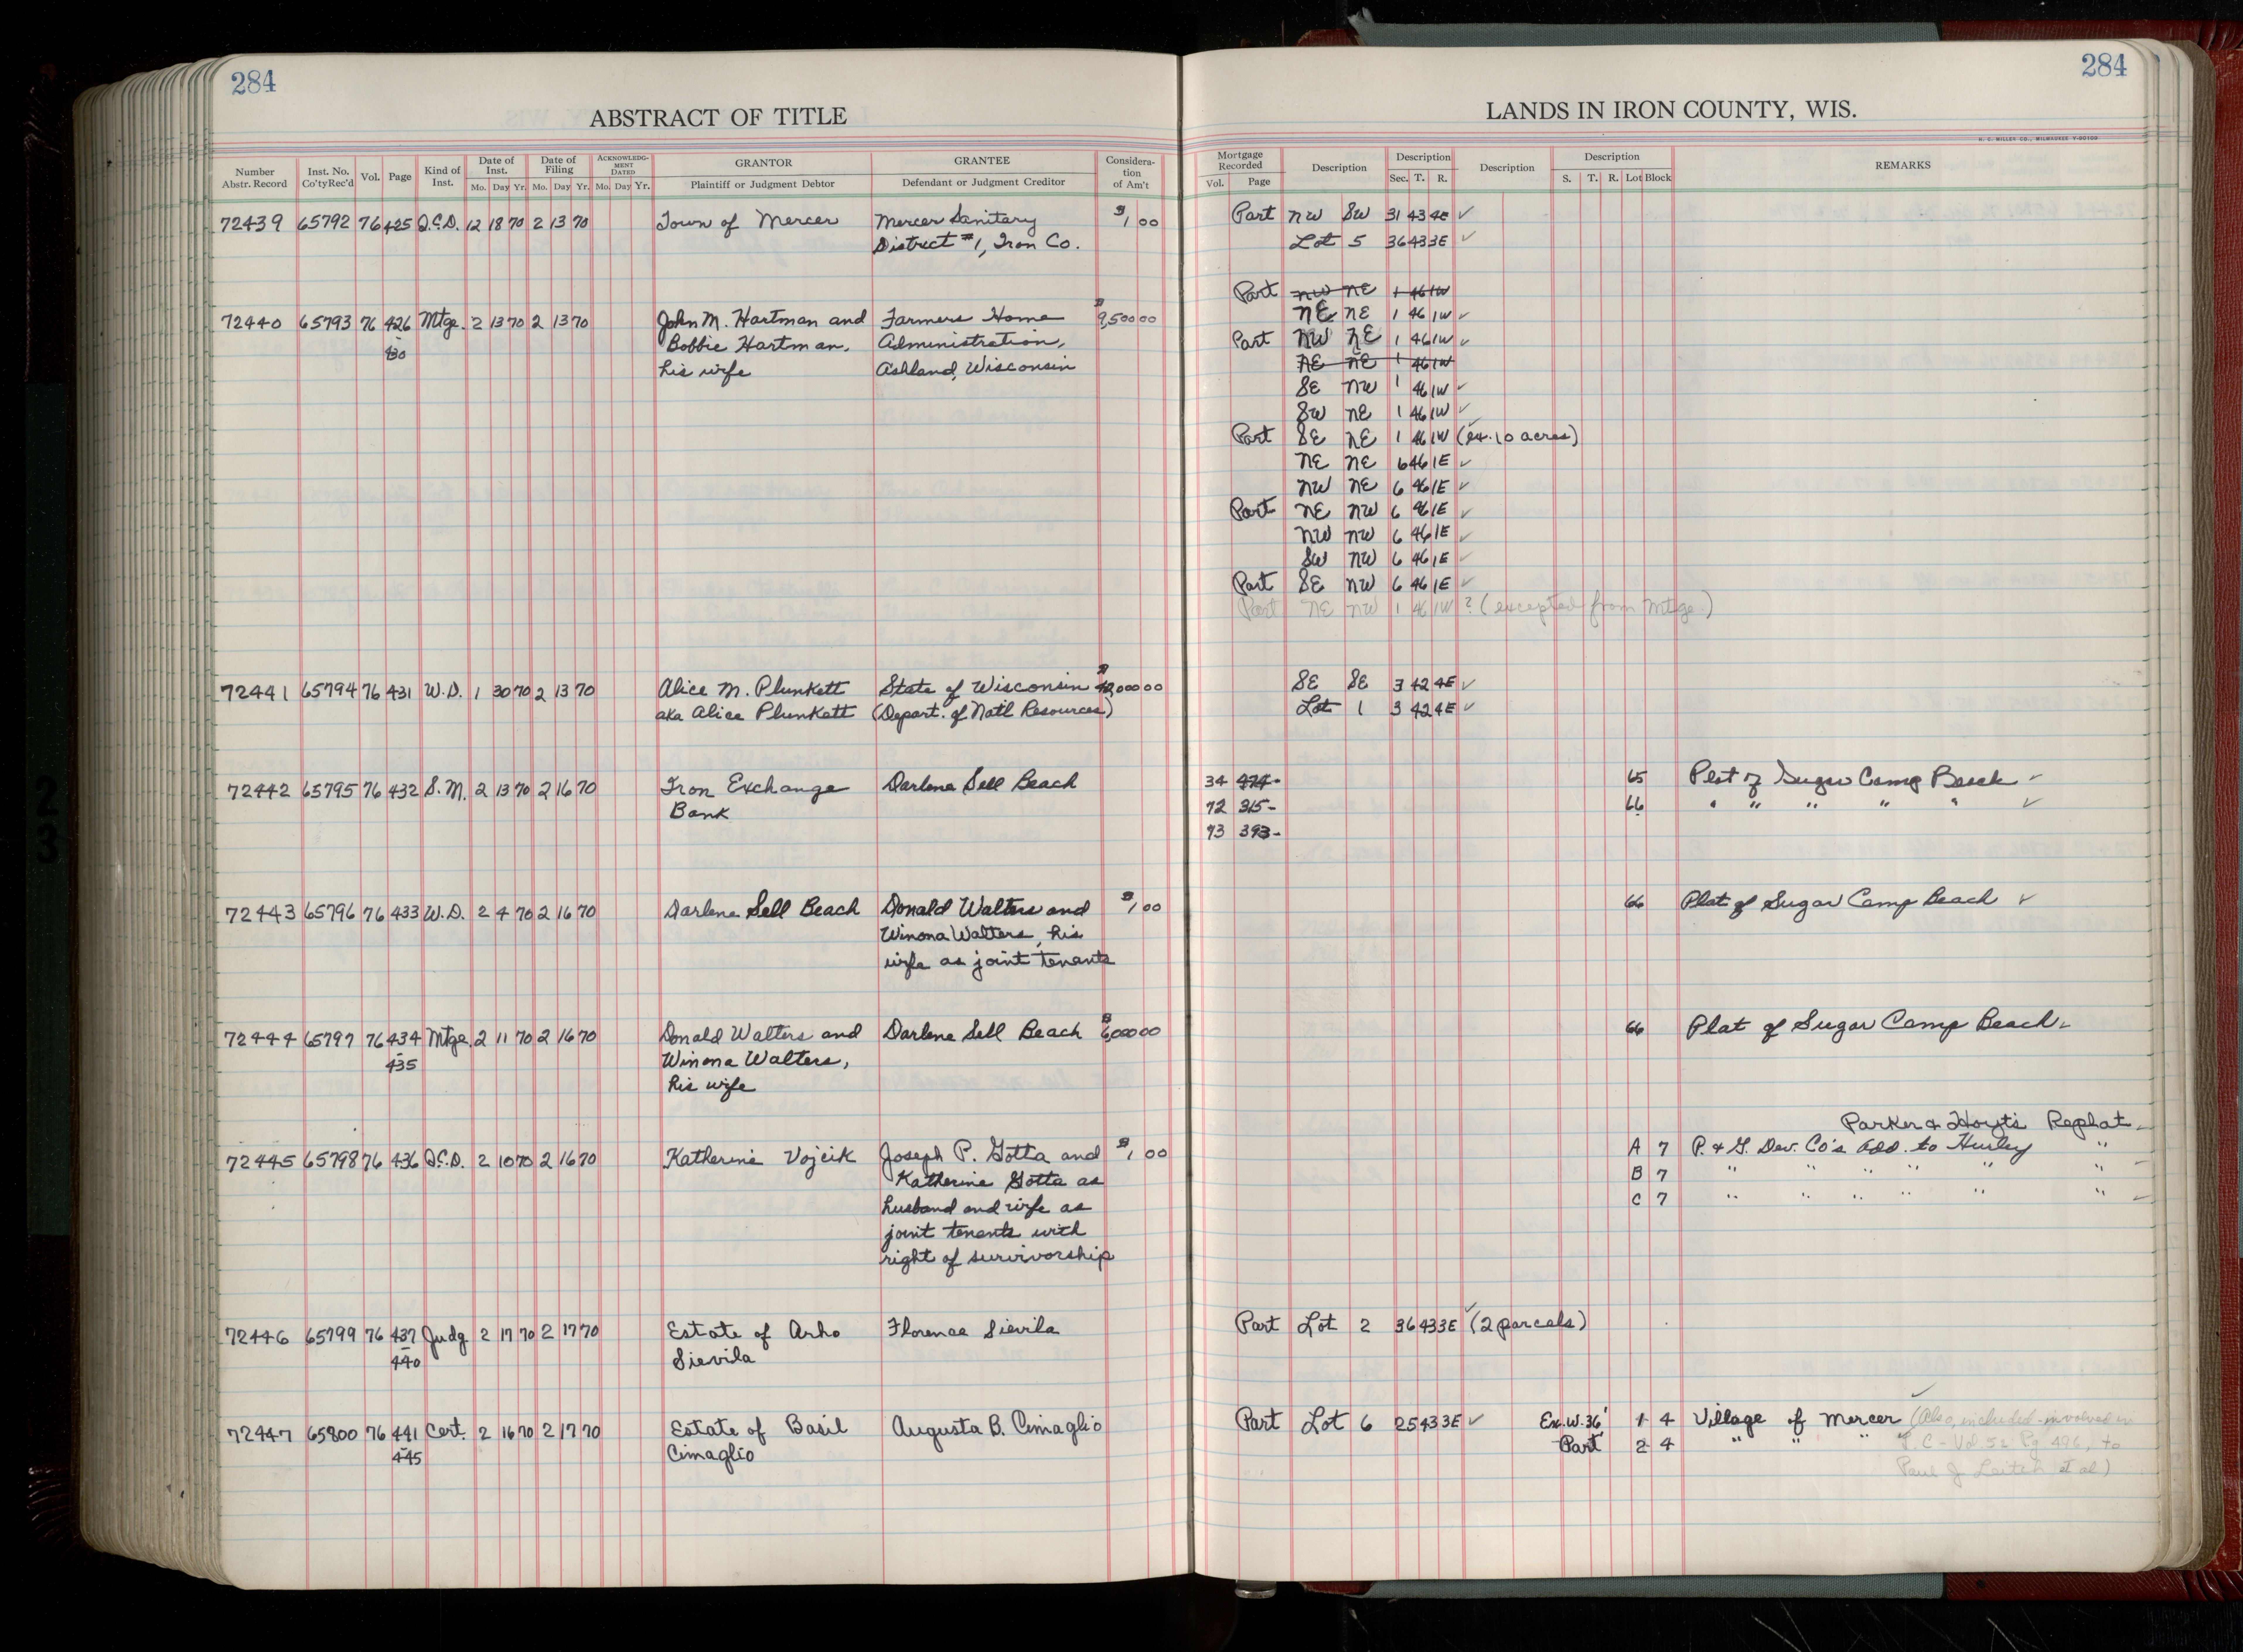 284
ABSTRACT OF TITLE
Number Abstr. Record | Inst. No. Co'ty Rec'd | Vol. | Page | Kind of Inst. | Date of Inst. Mo. Day Yr. | Date of Filing Mo. Day Yr. | Acknowledgment Dated Mo. Day Yr. | GRANTOR Plaintiff or Judgment Debtor | GRANTEE Defendant or Judgment Creditor | Consideration of Am't
72439 65792 76 425 Q.C.D. 12 18 70 2 13 70 Town of Mercer Mercer Sanitary $1 00
District #1, Iron Co.
72440 65793 76 426 Mtge. 2 13 70 2 13 70 John M. Hartman and Farmers Home $9,500 00
- 430 Bobbie Hartman, Administration,
his wife Ashland, Wisconsin
72441 65794 76 431 W.D. 1 30 70 2 13 70 Alice M. Plunkett State of Wisconsin $42,000 00
aka Alice Plunkett (Depart. of Nat'l Resources)
72442 65795 76 432 S.M. 2 13 70 2 16 70 Iron Exchange Darlene Sell Beach
Bank
72443 65796 76 433 W.D. 2 4 70 2 16 70 Darlene Sell Beach Donald Walters and $1 00
Winona Walters, his
wife as joint tenants
72444 65797 76 434 Mtge. 2 11 70 2 16 70 Donald Walters and Darlene Sell Beach $6,000 00
- 435 Winona Walters,
his wife
72445 65798 76 436 Q.C.D. 2 10 70 2 16 70 Katherine Vojcik Joseph P. Gotta and $1 00
Katherine Gotta as
husband and wife as
joint tenants with
right of survivorship
72446 65799 76 437 Judg 2 17 70 2 17 70 Estate of Arho Florence Sievila
- 440 Sievila
72447 65800 76 441 Cert. 2 16 70 2 17 70 Estate of Basil Augusta B. Cimaglio
- 445 Cimaglio
284
LANDS IN IRON COUNTY, WIS.
H. C. MILLER CO., MILWAUKEE Y-90109
Mortgage Recorded Vol. Page | Description | Description Sec. T. R. | Description | Description S. T. R. Lot Block | REMARKS
Part NW SW 31 43 4E ✓
Lot 5 36 43 3E ✓
Part NW NE 1 46 1W
NE NE 1 46 1W ✓
Part NW NE 1 46 1W ✓
NE NE 1 46 1W
SE NW 1 46 1W ✓
SW NE 1 46 1W ✓
Part SE NE 1 46 1W (ex. 10 acres)
NE NE 6 46 1E ✓
NW NE 6 46 1E ✓
Part NE NW 6 46 1E ✓
NW NW 6 46 1E ✓
SW NW 6 46 1E ✓
Part SE NW 6 46 1E ✓
Part NE NW 1 46 1W ? (excepted from Mtge.)
SE SE 3 42 4E ✓
Lot 1 3 42 4E ✓
34 474- 65 Plat of Sugar Camp Beach ✓
72 315- 66 " " " " " ✓
73 393-
66 Plat of Sugar Camp Beach ✓
66 Plat of Sugar Camp Beach ✓
Parker & Hoyt's Replat
A 7 P. & G. Dev. Co's Add. to Hurley "
B 7 " " " " " "
C 7 " " " " " "
Part Lot 2 36 43 3E ✓ (2 parcels)
Part Lot 6 25 43 3E ✓ Ex. W. 36' 1 4 Village of Mercer ✓ (Also included-involved in
Part 2 4 " " " L.C - Vol. 52 Pg 496, to
Paul J Leitch et al)